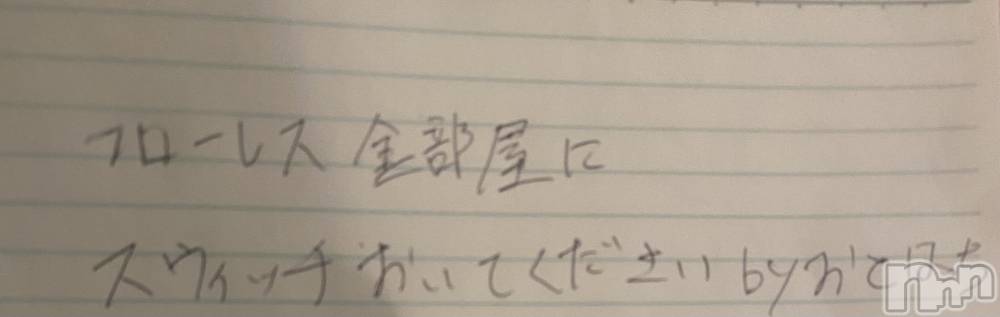 フローレス全部屋に
スウィッチおいてください by おとは